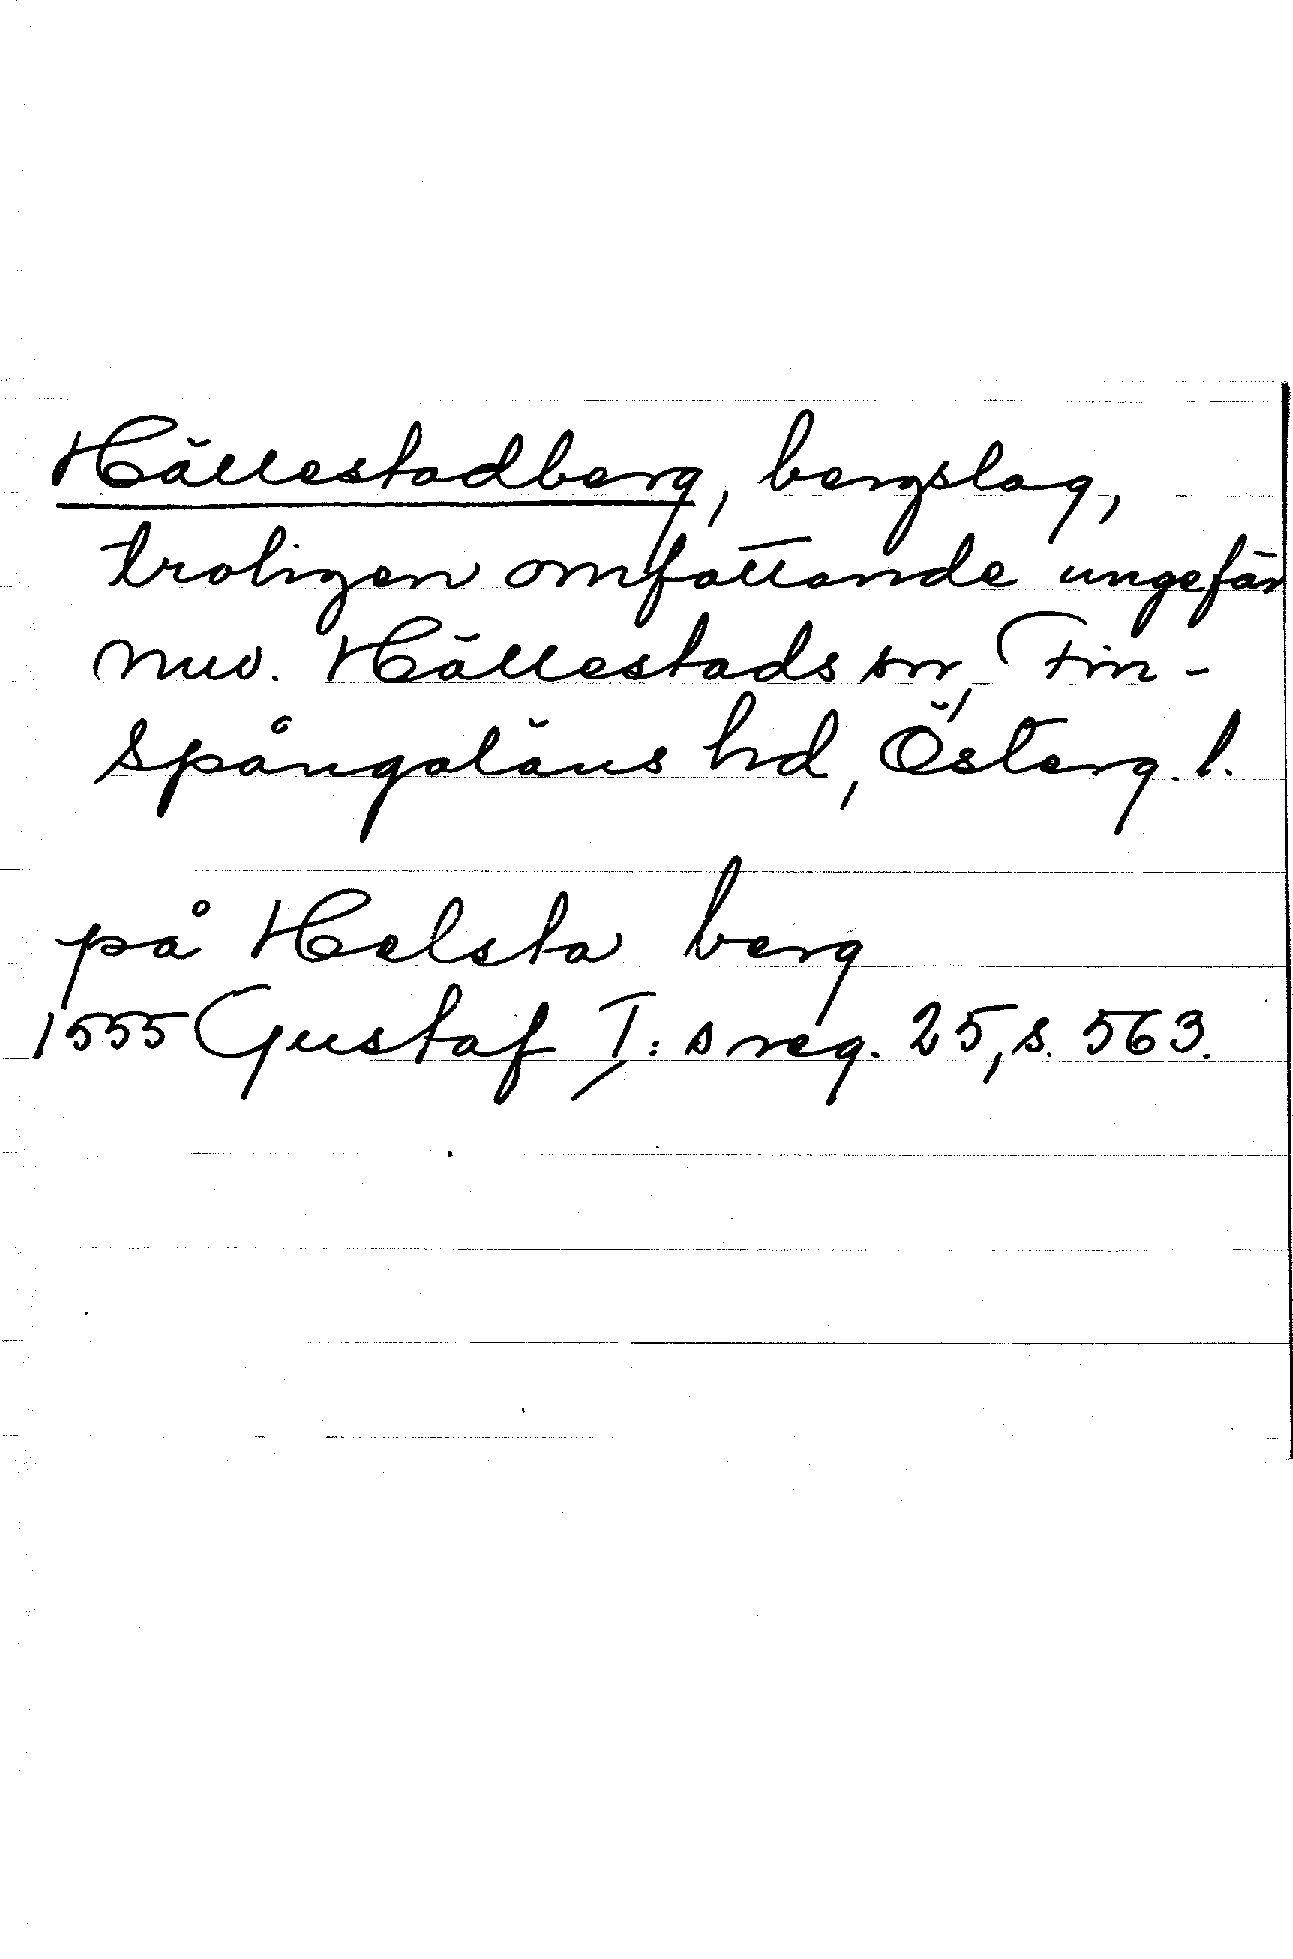 Hällestadberg, bergslag,
troligen omfattande ungefär
nuv. Hällestads sn, Fin-
spångaläns hd, Österg. l.
på Helsta berg
1555 Gustaf I:s reg. 25, s. 563.